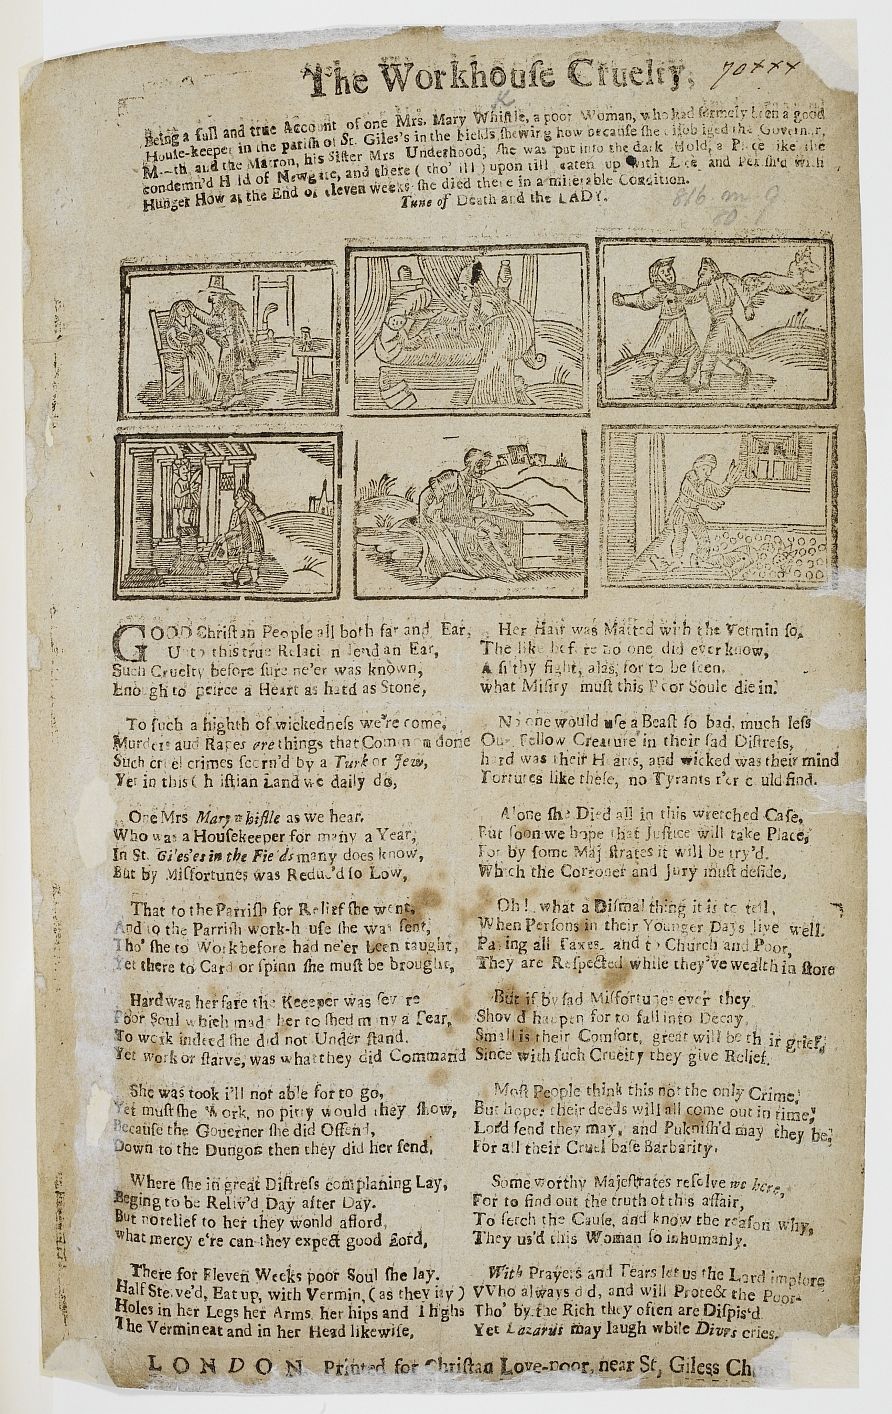 The Workhouse Cruelty,
70xxx
Being a full and true Account of one Mrs. Mary Whistle, a poor Woman, who had formely been a good
House-keeper in the parish of St. Giles's in the Fields, shewing how because she disobliged the Governer,
M---th and the Matron, his Sister Mrs Underhood; she was put into the dark Hold, a Place like the
condemn'd Hold of Newgate, and there ( tho' ill ) upon till eaten up with Lice and Perish'd with
Hunger How at the End of eleven weeks she died there in a miserable Condition.
Tune of Death and the LADY.
816. m. 9
80
GOOD Christian People all both far and Ear,
Unto this true Relation lend an Ear,
Such Cruelty before sure ne'er was known,
Enough to peirce a Heart as hard as Stone,
To such a highth of wickedness we're come,
Murders aud Rapes are things that Common done
Such cruel crimes scorn'd by a Turk or Jew,
Yet in this Christian Land we daily do,
One Mrs Mary whistle as we hear,
Who was a Housekeeper for many a Year,
In St. Giles'es in the Fields many does know,
But by Misfortunes was Reduc'd so Low,
That to the Parrish for Relief she went,
And to the Parrish work-house she was sent,
Tho' she to Work before had ne'er been taught,
Yet there to Card or spinn she must be brought,
Hard was her fare the Keeeper was severe
Poor Soul which made her to shed many a Tear,
To work indeed she did not Under stand.
Yet work or starve, was what they did Command
She was took i'll not able for to go,
Yet must she Work, no pitty would they show,
Because the Gouerner she did Offend,
Down to the Dungon then they did her send,
Where she in great Distress complaning Lay,
Beging to be Reliv'd Day after Day.
But no relief to her they wonld afford,
what mercy e're can they expect good Lord,
There for Eleven Weeks poor Soul she lay.
Half Sterve'd, Eat up, with Vermin, (as they say)
Holes in her Legs her Arms, her hips and Thighs
The Vermin eat and in her Head likewise,
Her Hair was Matted with the Vermin so,
The like before no one did ever know,
A filthy sight, alas, for to be seen,
what Misiry must this Poor Soule die in.
No one would use a Beast so bad, much less
Our Fellow Creature in their sad Distress,
hard was their Hearts, and wicked was their mind
Tortures like these, no Tyrants e'er could find.
Alone she Died all in this wretched Case,
But soon we hope that Justice will take Place,
For by some Majestrates it will be try'd.
Which the Corroner and Jury must deside,
Oh! what a Dismal thing it is to tell,
When Persons in their Younger Days live well.
Paying all Taxes, and to Church and Poor,
They are Respected while they've wealth in store
But if by sad Misfortunes ever they
Shov'd happen for to fall into Decay,
Small is their Comfort, great will be their grief;
Since with such Crueity they give Relief.
Most People think this not the only Crime,
But hopes their deeds will all come out in time,
Lord send they may, and Puknish'd may they be,
For all their Cruel base Barbarity,
Some worthy Majestrates resolve we here,
For to find out the truth of this affair,
To ferch the Cause, and know the reason why,
They us'd this Woman so inhumanly.
With Prayers and Tears let us the Lord implore
VVho always did, and will Protect the Poor
Tho' by the Rich they often are Dispis'd
Yet Lazarus may laugh while Dives cries.
LONDON Printed for Christian Love-poor, near St, Giless Ch